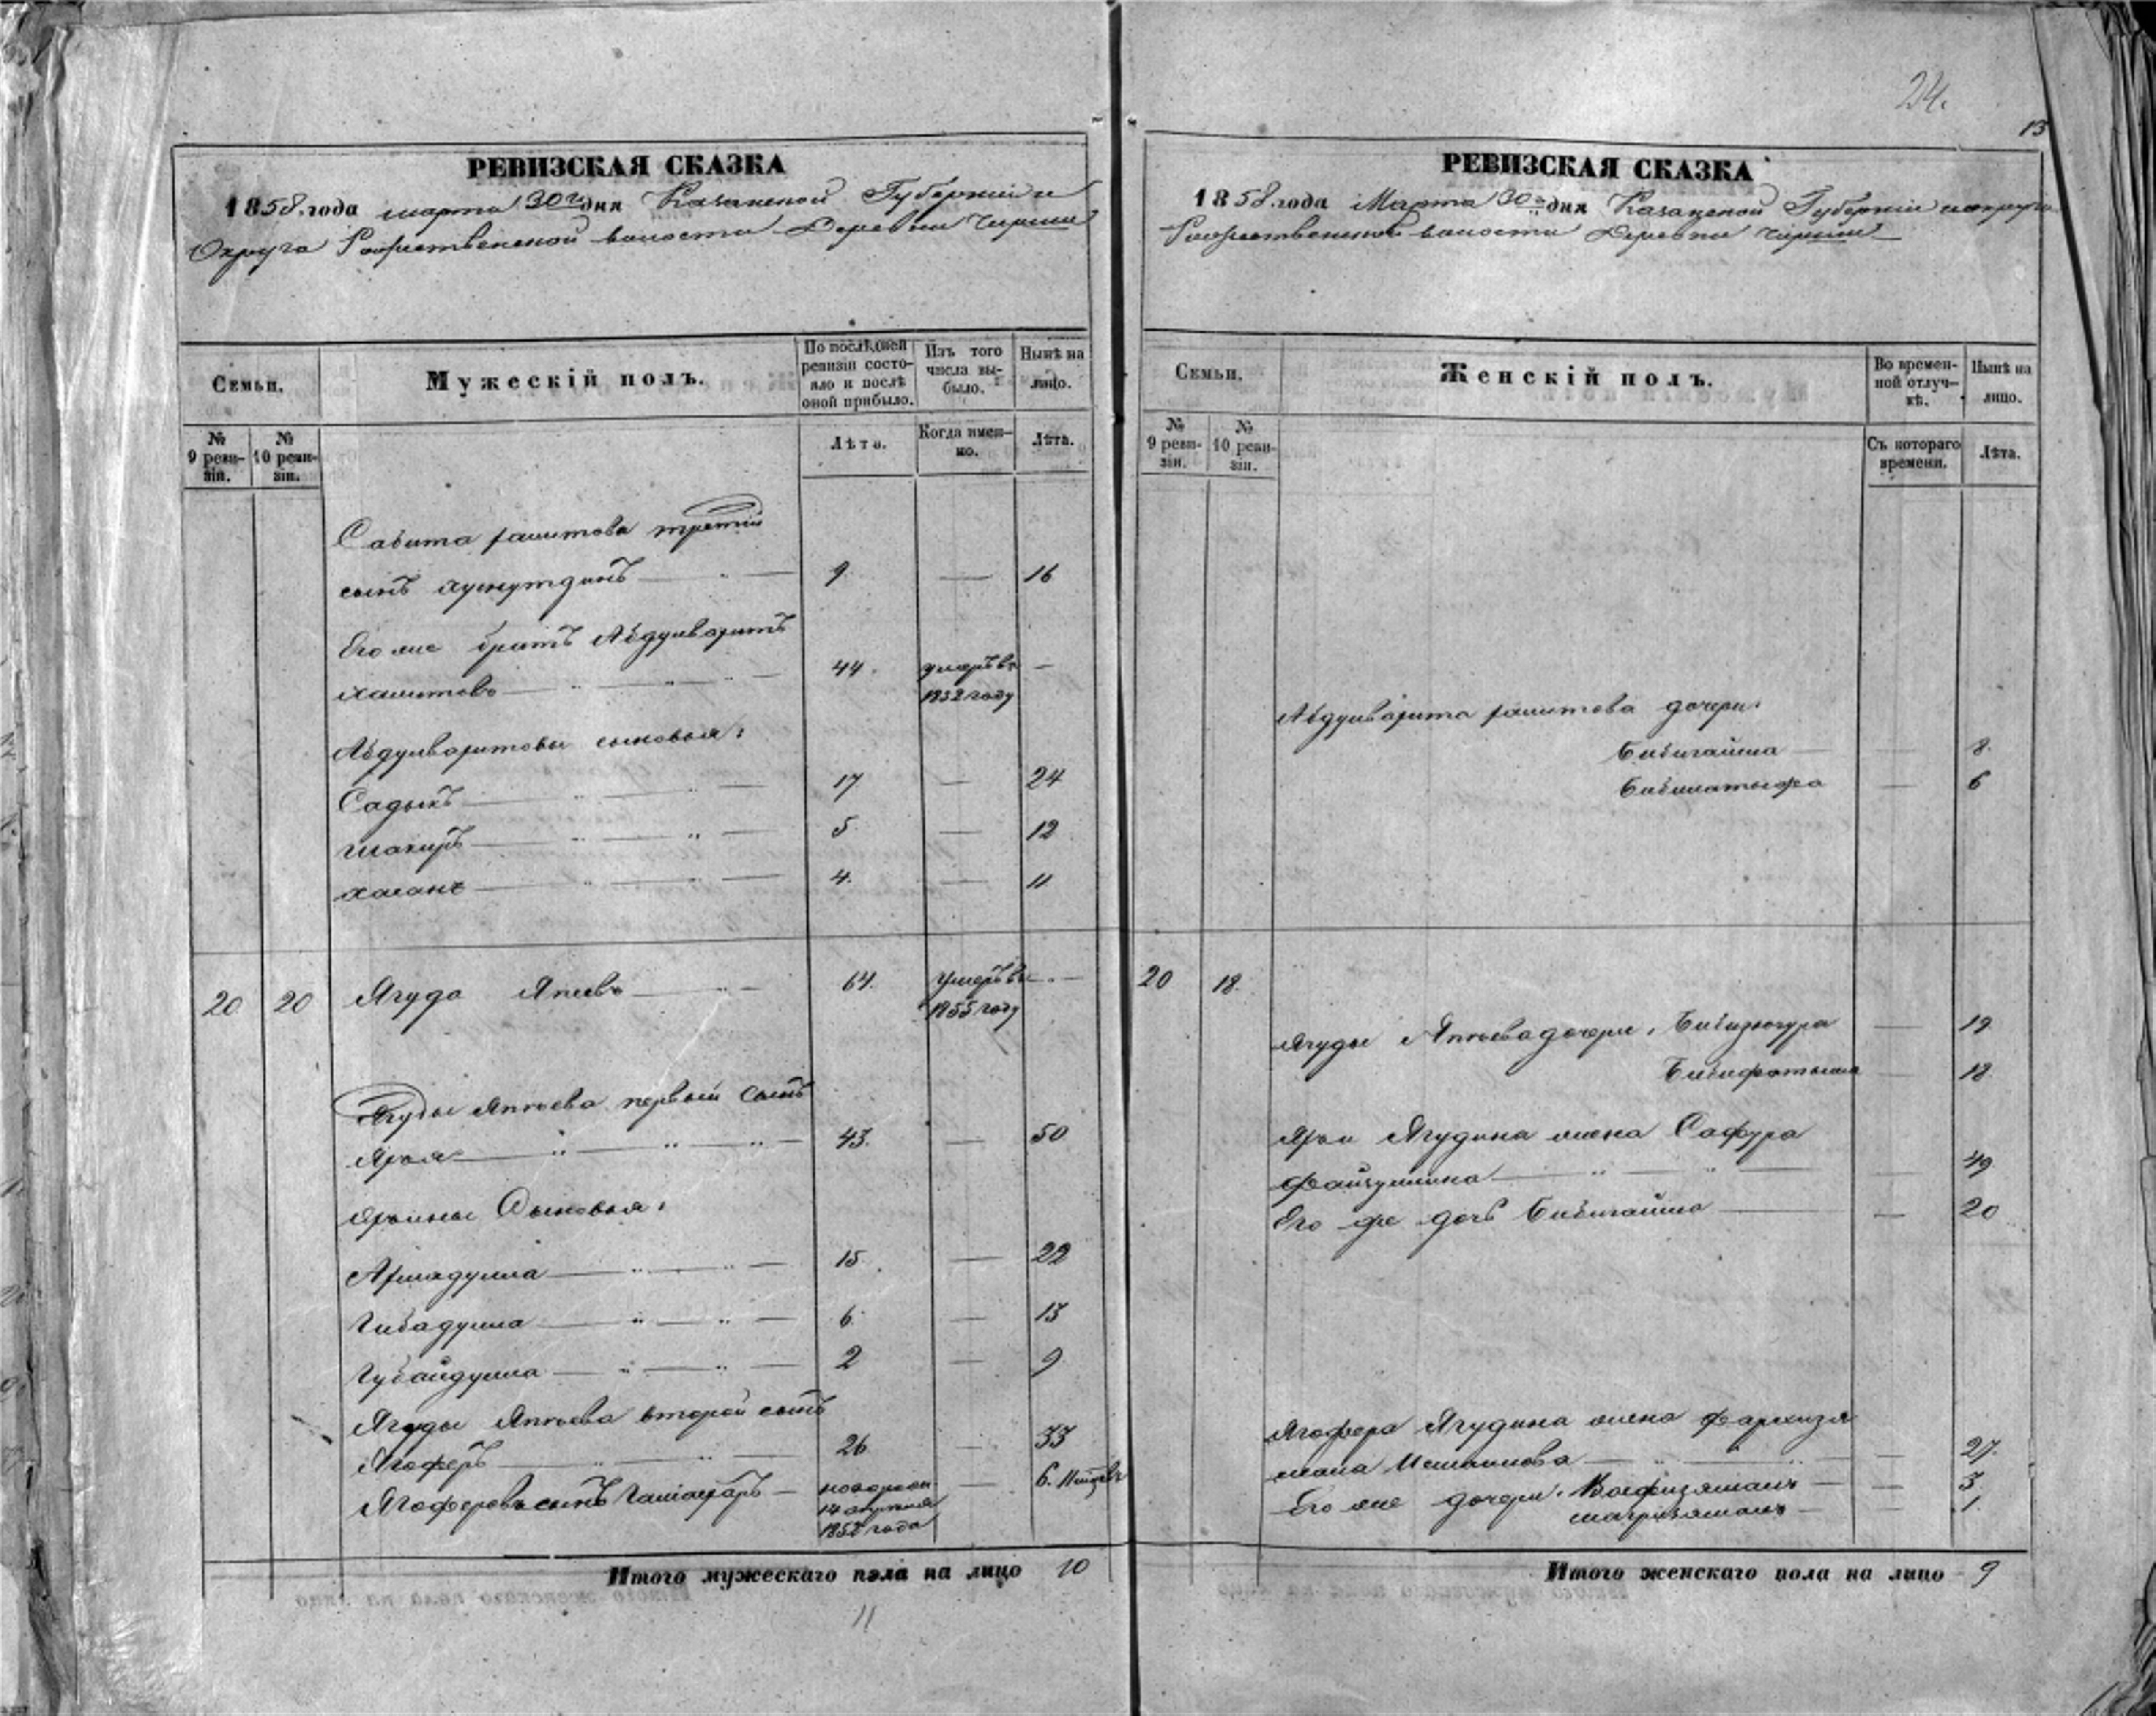 24.
13
РЕВИЗСКАЯ СКАЗКА
1858 года марта 30го дня Казанской Губернии и
Округа Рождественской волости Деревни Чирши
Семьи.
Мужескій полъ.
По послѣдней ревизіи состояло и послѣ оной прибыло.
Изъ того числа выбыло.
Нынѣ на лицо.
№ 9 ревизіи.
№ 10 ревизіи.
Лѣта.
Когда именно.
Лѣта.
Сабита рашитова третій
сынъ хуснутдинъ 9 — 16
Его же братъ Абдулваритъ
44. умеръ въ —
1852 году
Абдулваритовы сыновья:
Садыкъ 17 — 24
Шакиръ 5. — 12
хасанъ 4. — 11
20 20 Ягуда Япеевъ 64. умеръ въ —
1855 году
Ягуды Япѣева первый сынъ
Ярхя 43. — 50
Сыновья:
15. — 22
Гибадулла 6. — 13
Губайдулла 2 — 9
Ягуды Япѣева второй сынъ
Ягоферъ 26 — 33
Ягоферовъ сынъ — новорожн. — 6.
14 апреля
1852 года
Итого мужескаго пола на лицо 10
11
РЕВИЗСКАЯ СКАЗКА
1858 года Марта 30го дня Казанской Губерніи и округа
Рождественской волости Деревни Чирши
Семьи.
Женскій полъ.
Во временной отлучкѣ.
Нынѣ на лицо.
№ 9 ревизіи.
№ 10 ревизіи.
Съ котораго времени.
Лѣта.
Абдулварита рашитова дочери:
Бибигайша — 8.
6
20 18.
Ягуды Япѣева дочери: — 19
Бибифатыма — 18
Ягудина жена Сафура
49
Его же дочь Бибигайша — 20
Ягофера Ягудина жена
27.
Его же дочери: — 3.
1.
Итого женскаго пола на лицо 9